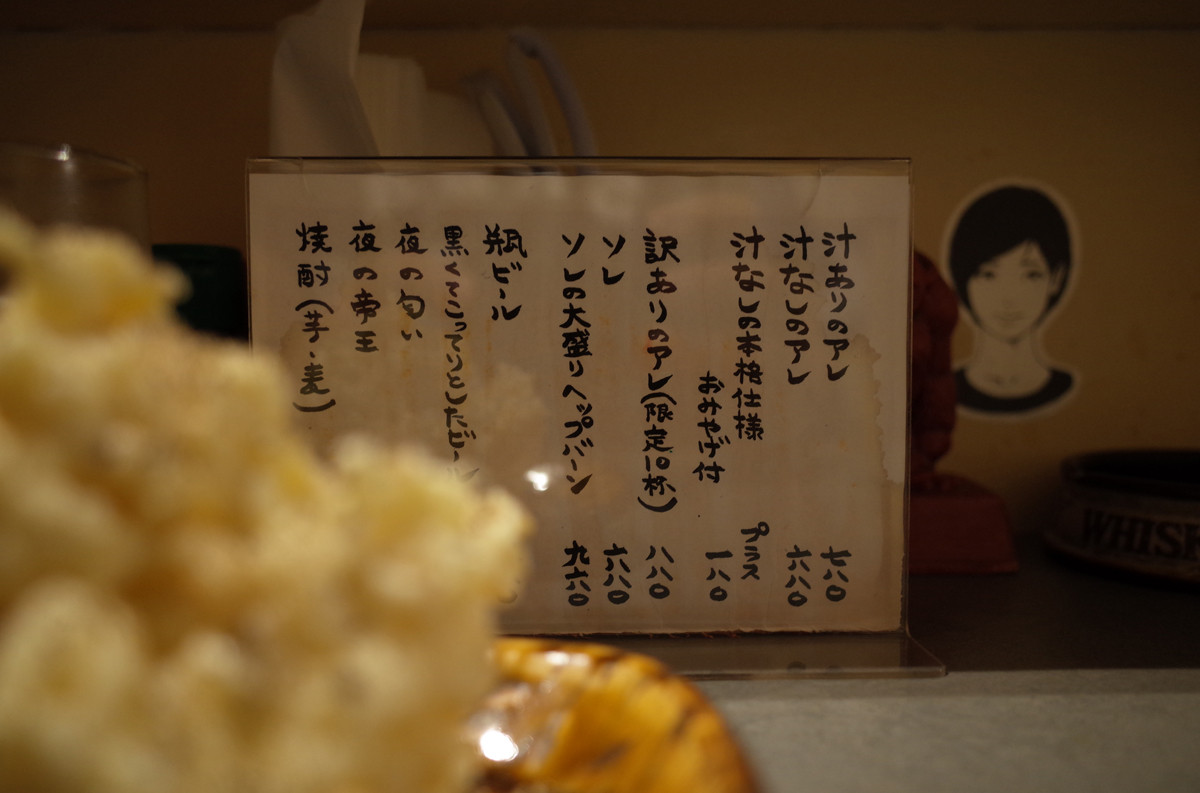 汁ありのアレ 七八〇
汁なしのアレ 六八〇
汁なしの本格仕様 プラス
おみやげ付 一八〇
訳ありのアレ(限定10杯) 八八〇
ソレ 六八〇
ソレの大盛りヘップバーン 九六〇
瓶ビール
黒くてこってりとしたビール
夜の匂い
夜の帝王
焼酎(芋・麦)